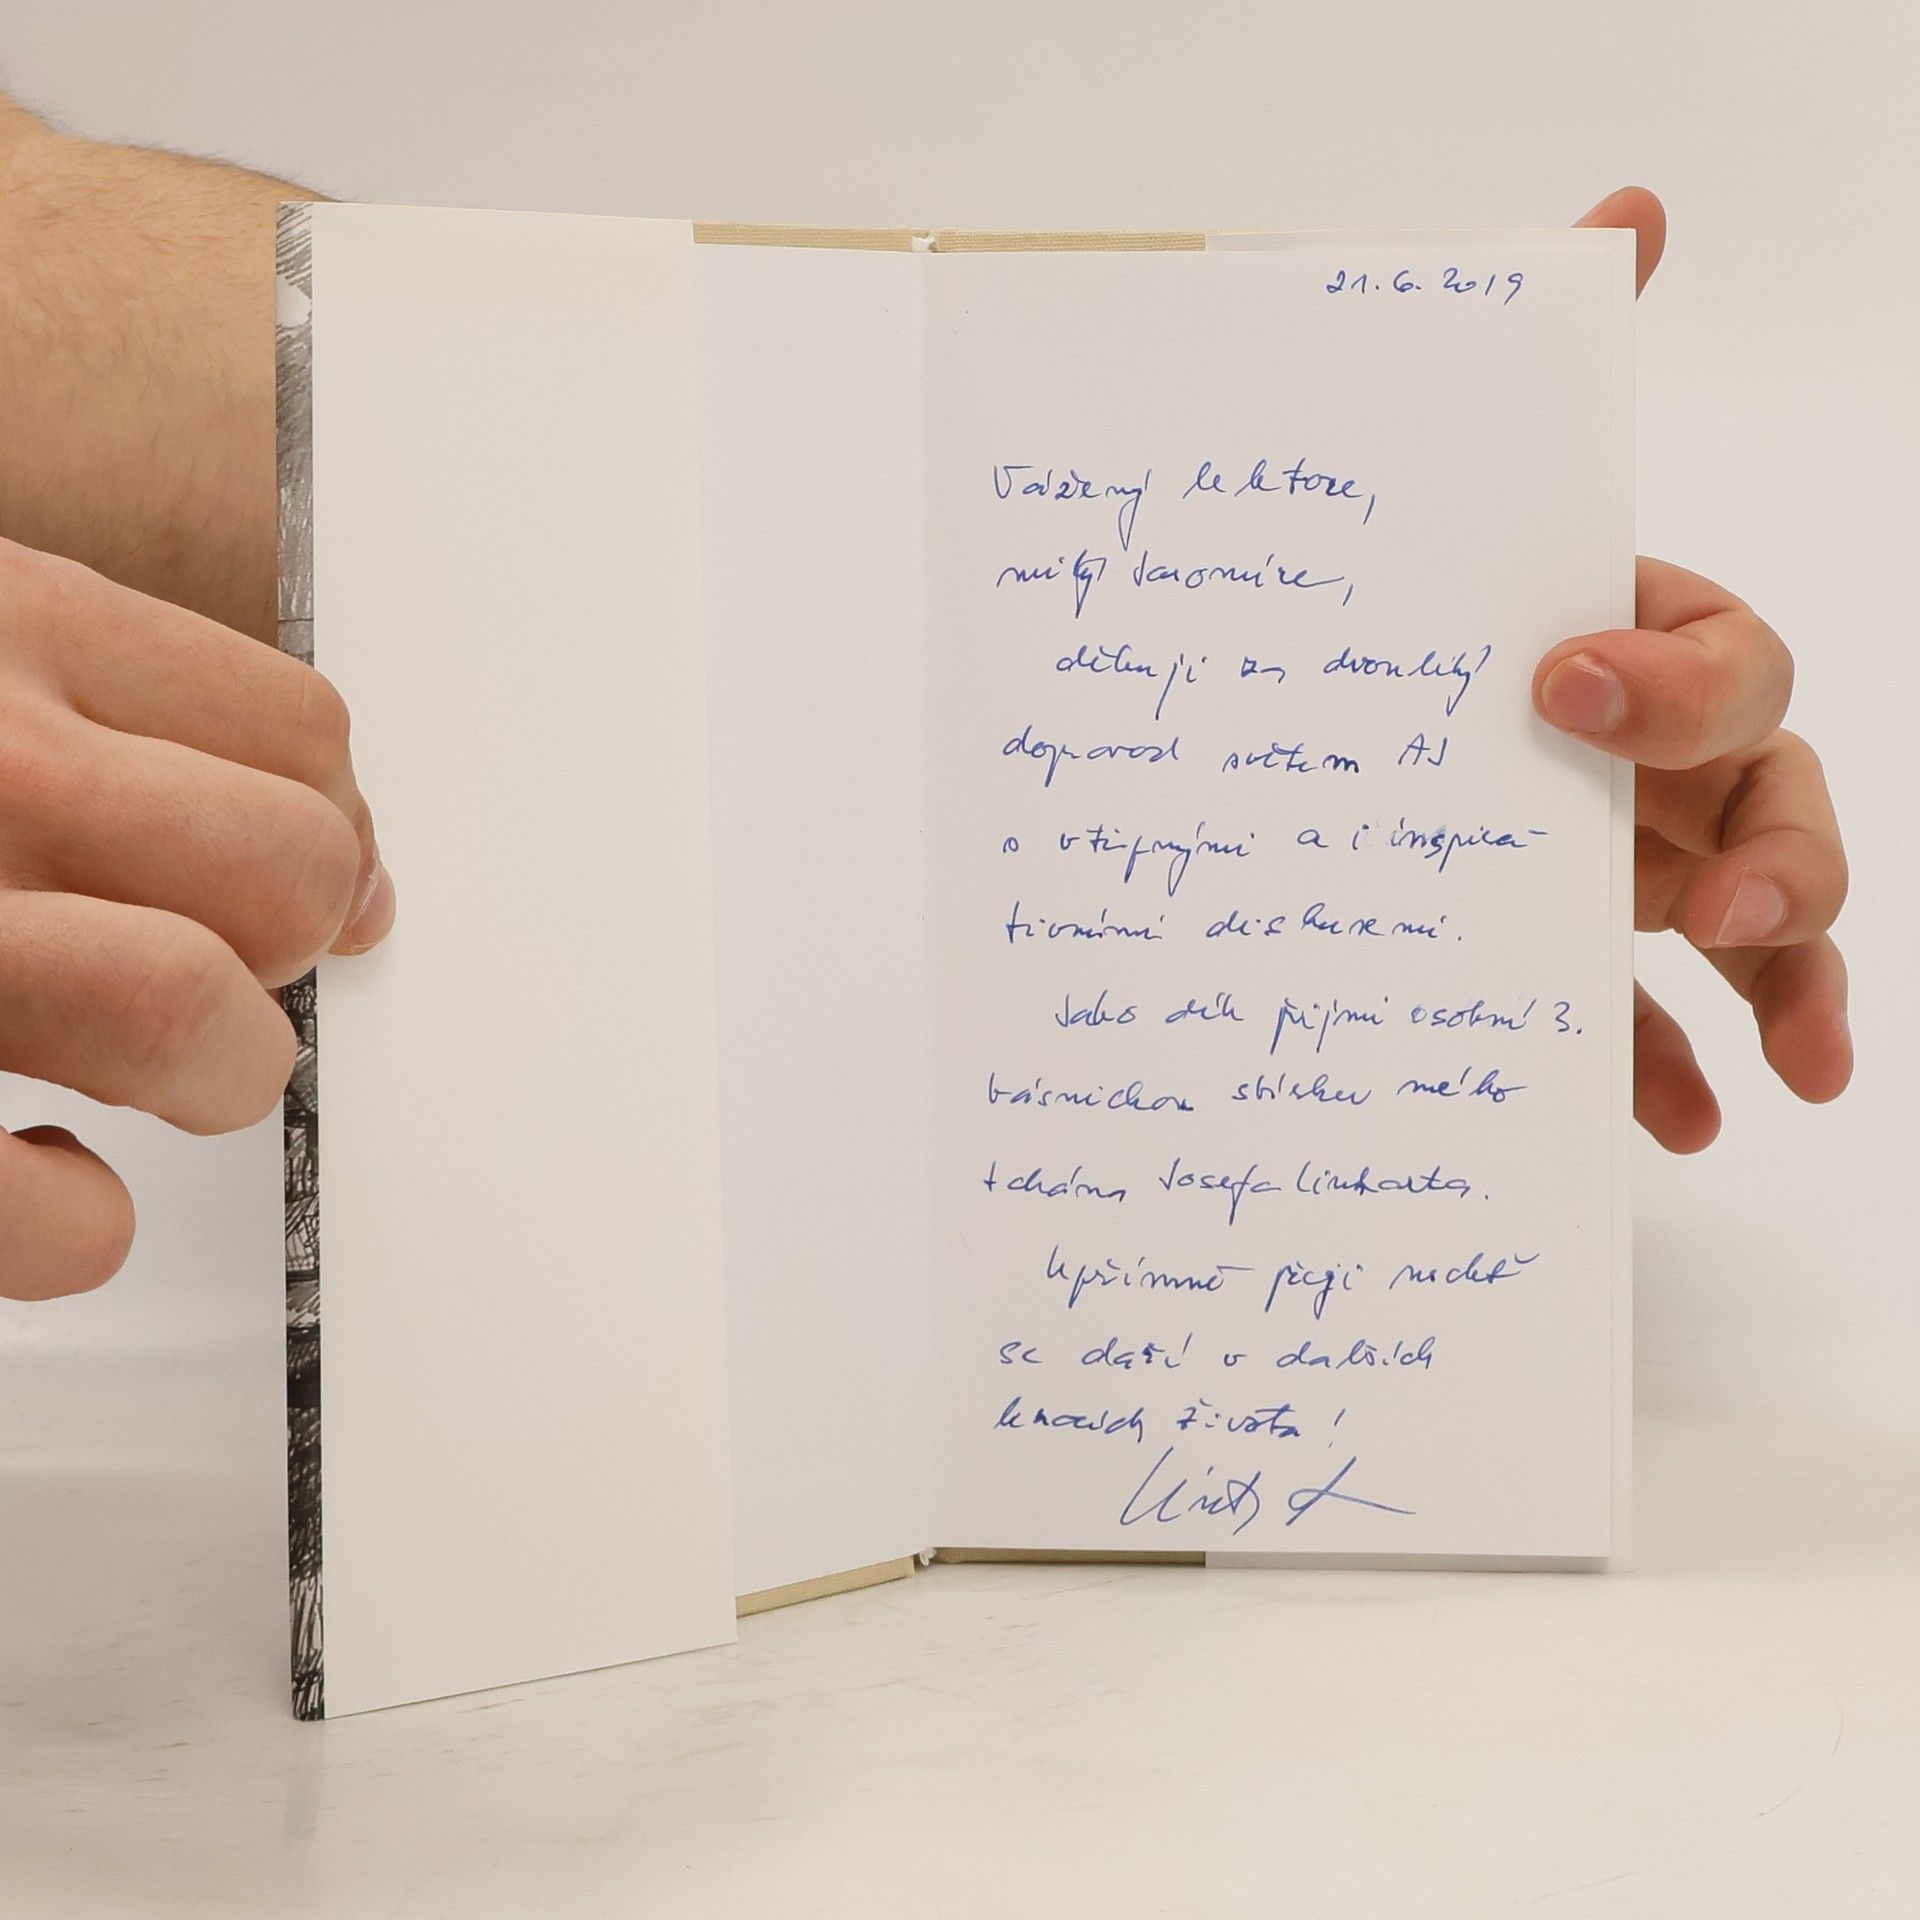 21. 6. 2019
Vážený lektore,
milý Jaromíre,
děkuji za dvouletý
doprovod světem AJ
s vtipnými a i inspira-
tivními diskusemi.
Jako dík přijmi osobní 3.
básnickou sbírku mého
tchána Josefa Linharta.
Upřímně přeji nechť
se daří v dalších
krocích života!